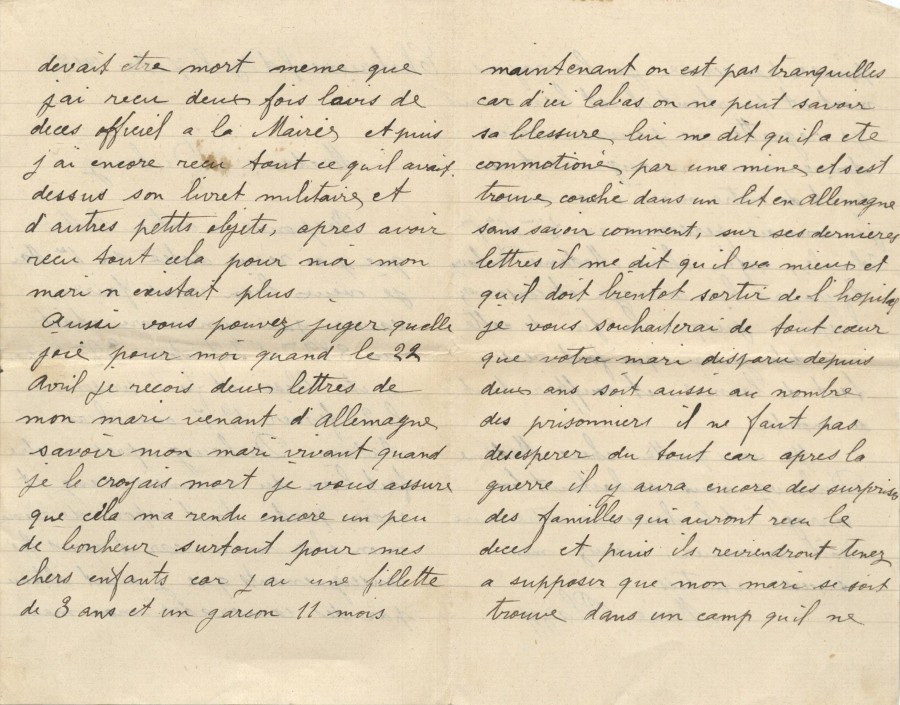 devait etre mort meme que
j'ai recu deux fois lavis de
deces officiel a la Mairie, et puis
j'ai encore recu tout ce qu'il avait.
dessus son livret militaire, et
d'autres petits objets, apres avoir
recu tout cela pour moi mon
mari n existait plus
Aussi vous pouvez juger quelle
joie pour moi quand le 22
Avril je recois deux lettres de
mon mari venant d'Allemagne
savoir mon mari vivant quand
je le croyais mort je vous assure
que cela ma rendu encore un peu
de bonheur surtout pour mes
chers enfants car j'ai une fillette
de 3 ans et un garcon 11 mois
maintenant on est pas tranquilles
car d'ici labas on ne peut savoir
sa blessure, lui me dit qu'il a ete
commotione, par une mine, et s est
trouve couché dans un lit en Allemagne
sans savoir comment, sur ses dernieres
lettres il me dit qu il va mieux et
qu il doit bientot sortir de l'hopital
je vous souhaiterai de tout cœur
que votre mari disparu depuis
deux ans soit aussi au nombre
des prisonniers il ne faut pas
desesperer du tout car apres la
guerre il y aura encore des surprises
des familles qui auront recu le
deces et puis ils reviendront tenez
a supposer que mon mari se soit
trouve dans un camp qu'il ne